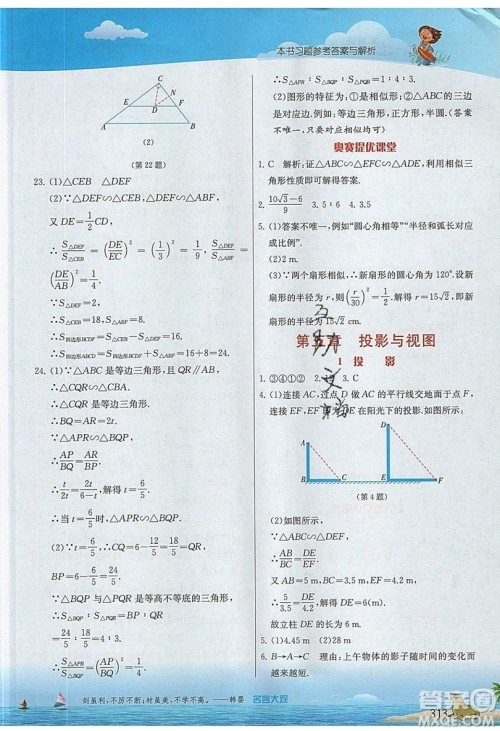 本书习题参考答案与解析
C
E
F
D
A
B
(2)
(第22题)
23. (1)△CEB △DEF
(2)∵△ABF∽△CEB∽△DEF,
又DE=1/2CD,
∴S△DEF/S△CEB=(DE/EC)²=(1/3)²=1/9, S△DEF/S△ABF=
(DE/AB)²=1/4.
∵S△DEF=2,
∴S△CEB=18, S△ABF=8.
∴S四边形BCDF=S△CEB-S△DEF=16.
∴S四边形ABCD=S四边形BCDF+S△ABF=16+8=24.
24. (1)∵△ABC是等边三角形,且QR∥AB,
∴△CRQ∽△CBA.
∴△CRQ是等边三角形.
∵△APR∽△BQP,
∴AP/BQ=AR/BP.
∴t/2t=2t/(6-t),解得t=6/5.
∴当t=6/5时,△APR∽△BQP.
(2)∵t=6/5,∴CQ=6-2t=6-2×6/5=18/5,
BP=6-6/5=24/5.
∵△BQP与△PQR是等高不等底的三角形,
∴S△BQP∶S△PQR=BP∶QR=
24/5∶18/5=4∶3.
∴S△APR∶S△BPQ∶S△PQR=1∶4∶3.
(2)图形的特征为:①是相似形;②△ABC的三边
是对应边.例如:等边三角形,正方形,半圆.(答案
不唯一,只要符合要求即可)
奥赛提优课堂
1. C 解析:证△ABC∽△DEC,然后利用相似三角
形性质即可解得答案.
3. 5;6 4. 3.5
5. (1)答案不唯一,例如“圆心角相等”“半径和弧长对应
成比例”.
(2)2m.
(3)∵两个扇形相似,∴新扇形的圆心角为120°.设新
扇形的半径为r,则(r/30)²=1/2,解得r=15√2.即新扇
形的半径为15√2 cm.
第五章 投影与视图
1 投 影
1. ③④①② 3. C
4. (1)连接AC,过点D作AC的平行线交地面于点F,
连接EF,EF即为DE在阳光下的投影.如图所示.
D
A
B
C
E
F
(第4题)
(2)如图所示,
∵△ABC∽△DEF,
∴AB/BC=DE/EF.
又AB=5 m,BC=3.5 m,EF=4.2 m,
∴5/3.5=DE/4.2.解得DE=6(m).
故立柱DE的长为6 m.
5. (1)4.45 m (2)2 m
6. B→A→C 理由:上午物体的影子随时间的改变而
越来越短.
剑虽利,不厉不断;材虽美,不学不高。——韩婴 名言大观
313
答案圈
MXQE.COM